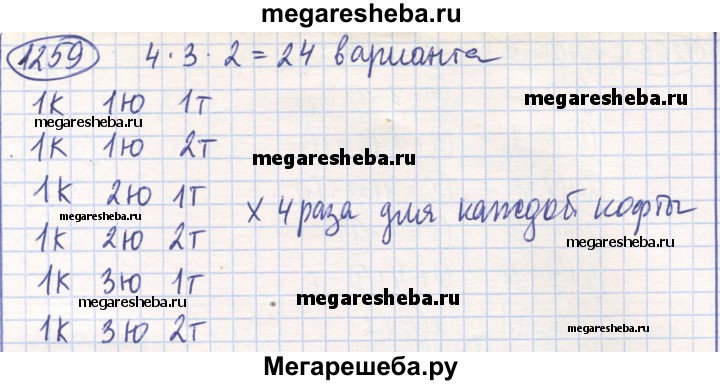 megaresheba.ru
1259 4 · 3 · 2 = 24 варианта
1К 1Ю 1Т
megaresheba.ru
megaresheba.ru
1К 1Ю 2Т
megaresheba.ru
1К 2Ю 1Т
х 4 раза для каждой кофты
megaresheba.ru
1К 2Ю 2Т
megaresheba.ru
1К 3Ю 1Т
megaresheba.ru
megaresheba.ru
1К 3Ю 2Т
megaresheba.ru
Мегарешеба.ру